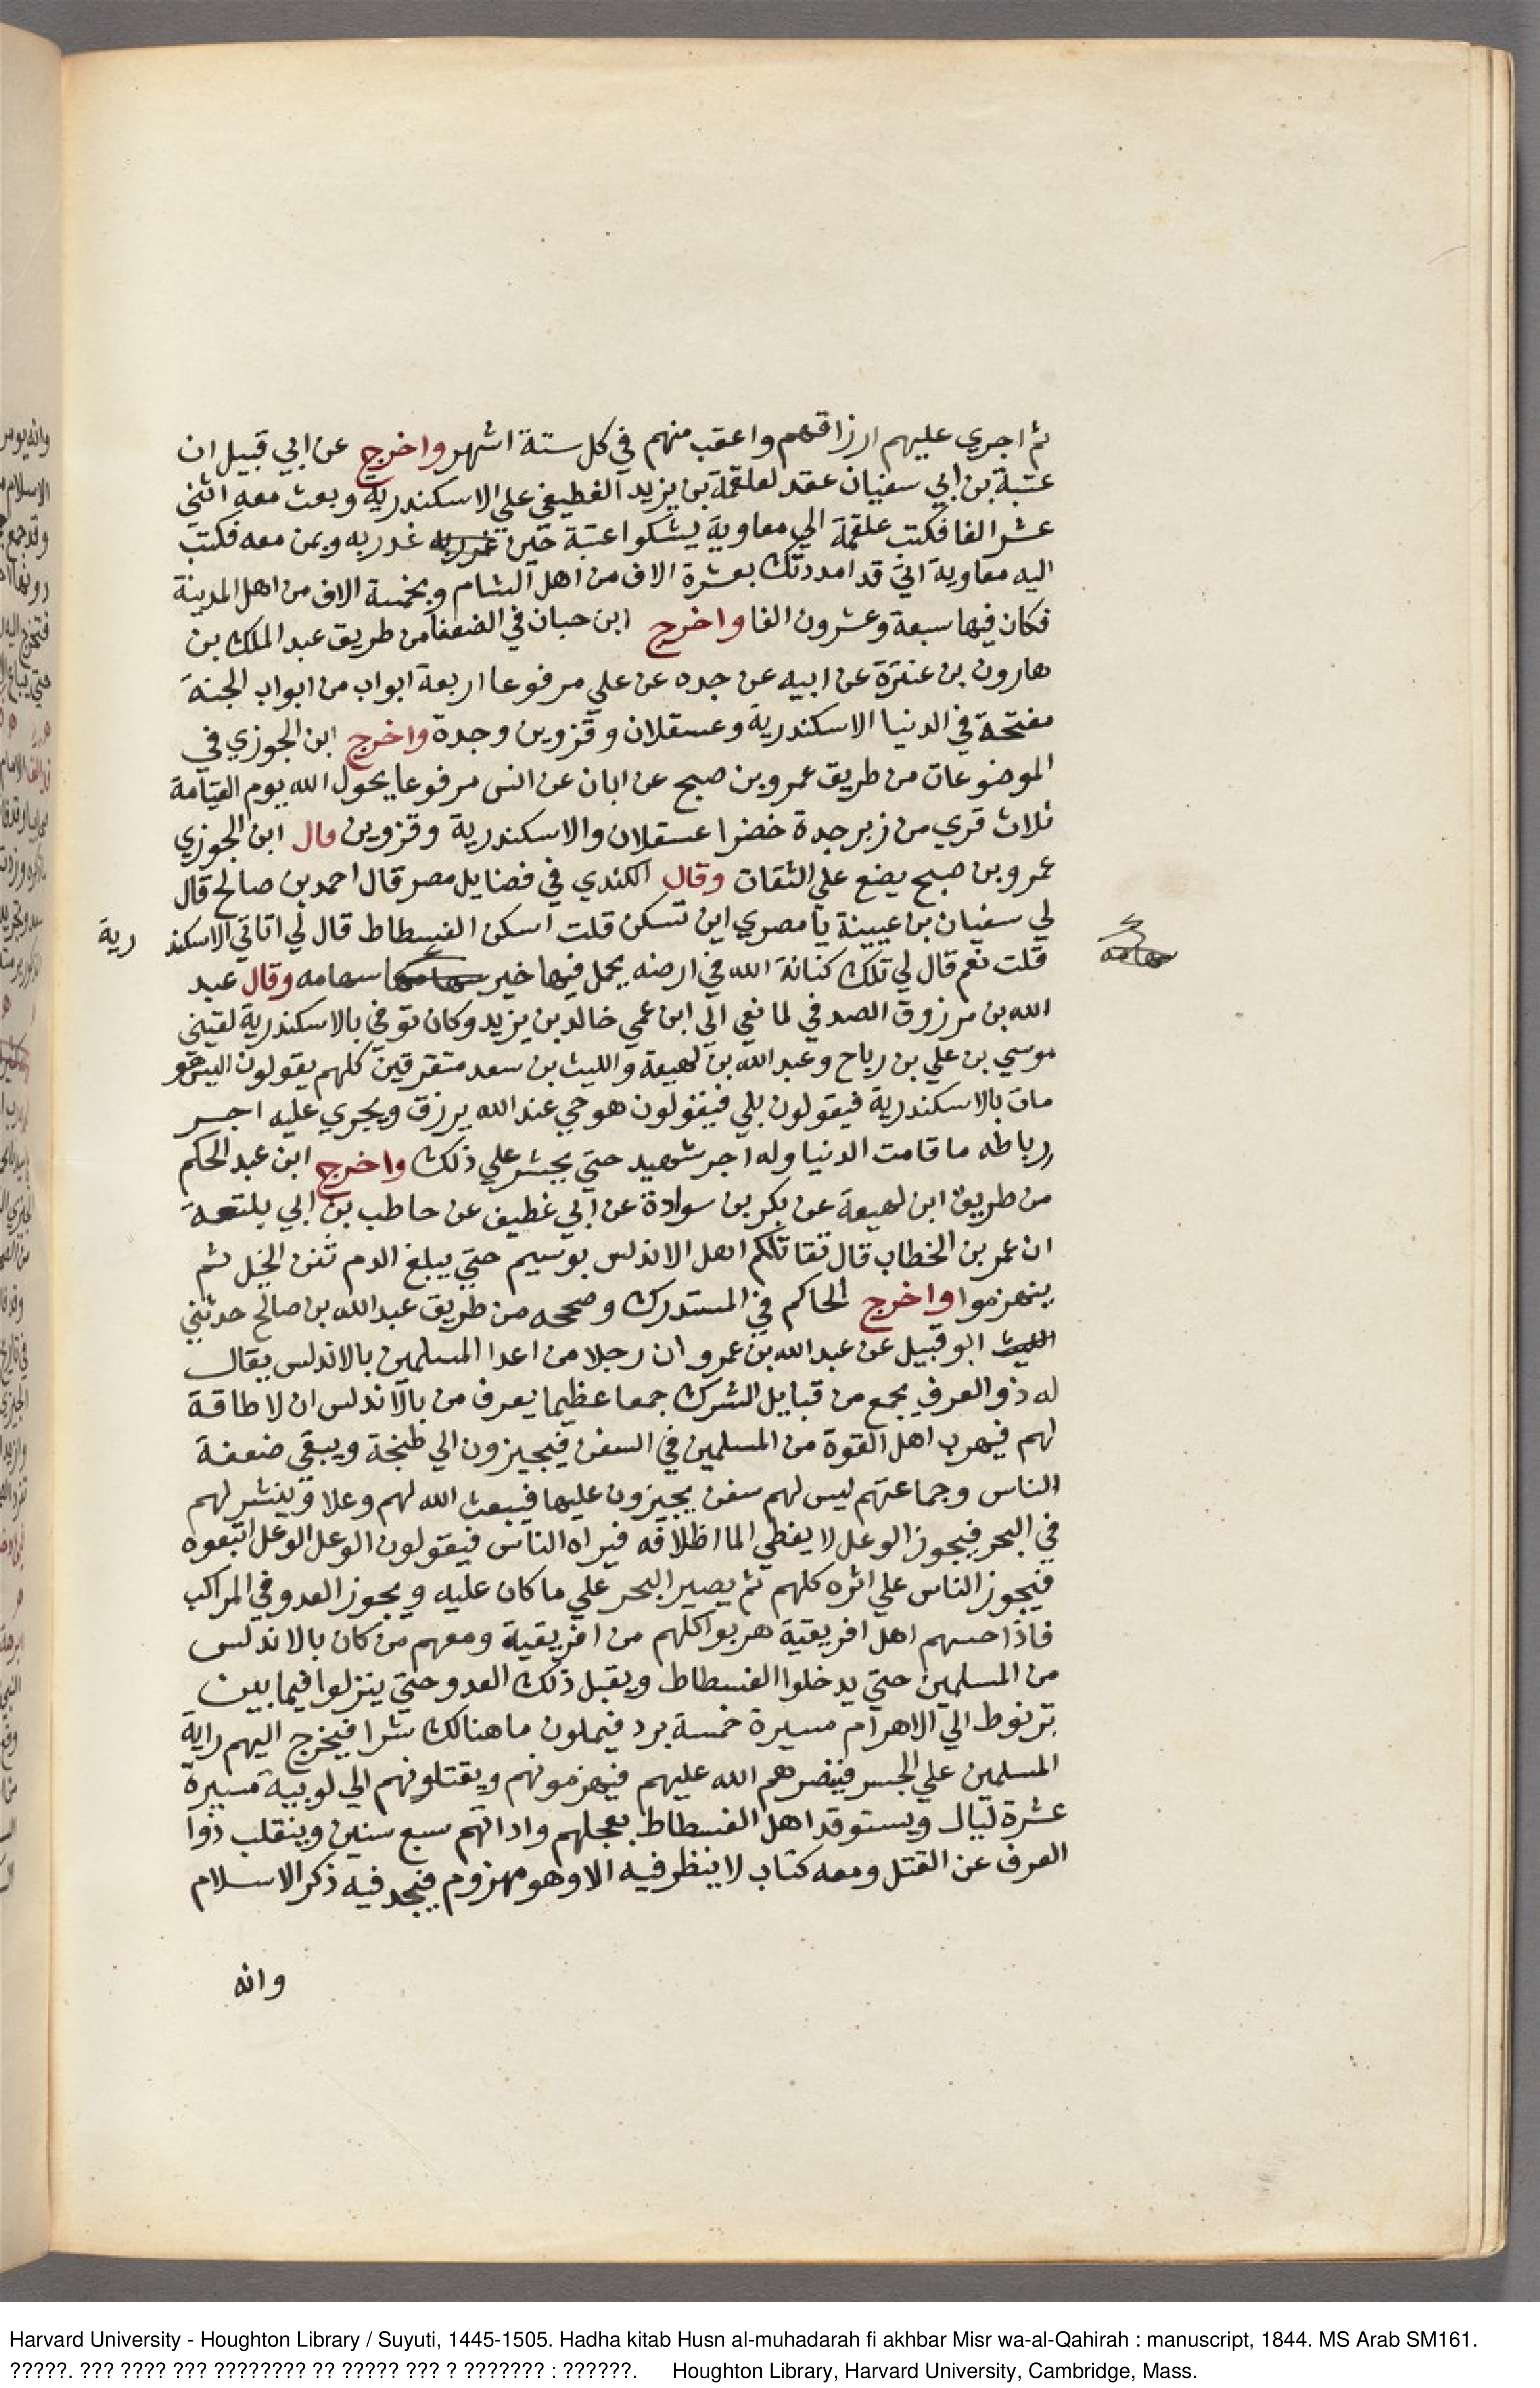 ثم اجري عليهم ارزاقهم واعقب منهم في كل ستة اشهر واخرج عن ابي قبيل ان
عتبة بن ابي سفيان عقد لعلقمة بن يزيد الغطيفي علي الاسكندرية وبعث معه اثني
عشر الفا فكتب علقمة الي معاوية يشكوا عتبة حين غرر به غدر به وبمن معه فكتب
اليه معاوية اني قد امددتك بعشرة الاف من اهل الشام وبخمسة الاف من اهل المدينة
فكان فيها سبعة وعشرون الفا واخرج ابن حبان في الضعفا من طريق عبد الملك بن
هارون بن عنترة عن ابيه عن جده عن علي مرفوعا اربعة ابواب من ابواب الجنة
مفتحة في الدنيا الاسكندرية وعسقلان وقزوين وجدة واخرج ابن الجوزي في
الموضوعات من طريق عمرو بن صبح عن ابان عن انس مرفوعا يحول الله يوم القيامة
ثلاث قري من زبرجدة خضرا عسقلان والاسكندرية وقزوين قال ابن الجوزي
عمرو بن صبح يضع علي الثقات وقال الكندي في فضايل مصر قال احمد بن صالح قال
لي سفيان بن عيينة يا مصري اين تسكن قلت اسكن الفسطاط قال لي اتاتي الاسكند رية
قلت نعم قال لي تلك كنانة الله في ارضه يحمل فيها خير سهامه وقال عبد
الله بن مرزوق الصدفي لما نعي الي ابن عمي خالد بن يزيد وكان توفي بالاسكندرية لقيني
موسي بن علي بن رباح وعبد الله بن لهيعة والليث بن سعد متفرقين كلهم يقولون اليس هو
مات بالاسكندرية فيقولون بلي فيقولون هو حي عند الله يرزق ويجري عليه اجر
رباطه ما قامت الدنيا وله اجر شهيد حتي يحشر علي ذلك واخرج ابن عبد الحكم
من طريق ابن لهيعة عن بكر بن سوادة عن ابي غطيف عن حاطب بن ابي بلتعة
ان عمر بن الخطاب قال تقاتلكم اهل الاندلس بوسيم حتي يبلغ الدم ثنن الخيل ثم
ينهزموا واخرج الحاكم في المستدرك وصححه من طريق عبد الله بن صالح حدثني
الليث ابو قبيل عن عبد الله بن عمرو ان رجلا من اعدا المسلمين بالاندلس يقال
له ذو العرف يجمع من قبايل الشرك جمعا عظيما يعرف من بالاندلس ان لا طاقة
لهم فيهرب اهل القوة من المسلمين في السفن فيجيزون الي طنجة ويبقي ضعفة
الناس وجماعتهم ليس لهم سفن يجيزون عليها فيبعث الله لهم وعلا وينشر لهم
في البحر فيجوز الوعل لا يغطي الما اظلافه فيراه الناس فيقولون الوعل الوعل اتبعوه
فيجوز الناس علي اثره كلهم ثم يصير البحر علي ما كان عليه ويجوز العدو في المراكب
فاذا حسهم اهل افريقية هربوا كلهم من افريقية ومعهم من كان بالاندلس
من المسلمين حتي يدخلوا الفسطاط ويقبل ذلك العدو حتي ينزلوا فيما بين
ترنوط الي الاهرام مسيرة خمسة برد فيملون ما هنالك شرا فيخرج اليهم راية
المسلمين علي الجسر فينصرهم الله عليهم فيهزمونهم ويقتلونهم الي لوبية مسيرة
عشرة ليال ويستوقد اهل الفسطاط بعجلهم واداتهم سبع سنين وينقلب ذوا
العرف عن القتل ومعه كتاب لا ينظر فيه الا وهو مهزوم فيجد فيه ذكر الاسلام
وانه
Harvard University - Houghton Library / Suyuti, 1445-1505. Hadha kitab Husn al-muhadarah fi akhbar Misr wa-al-Qahirah : manuscript, 1844. MS Arab SM161.
?????. ??? ???? ??? ???????? ?? ????? ??? ? ??????? : ??????. Houghton Library, Harvard University, Cambridge, Mass.